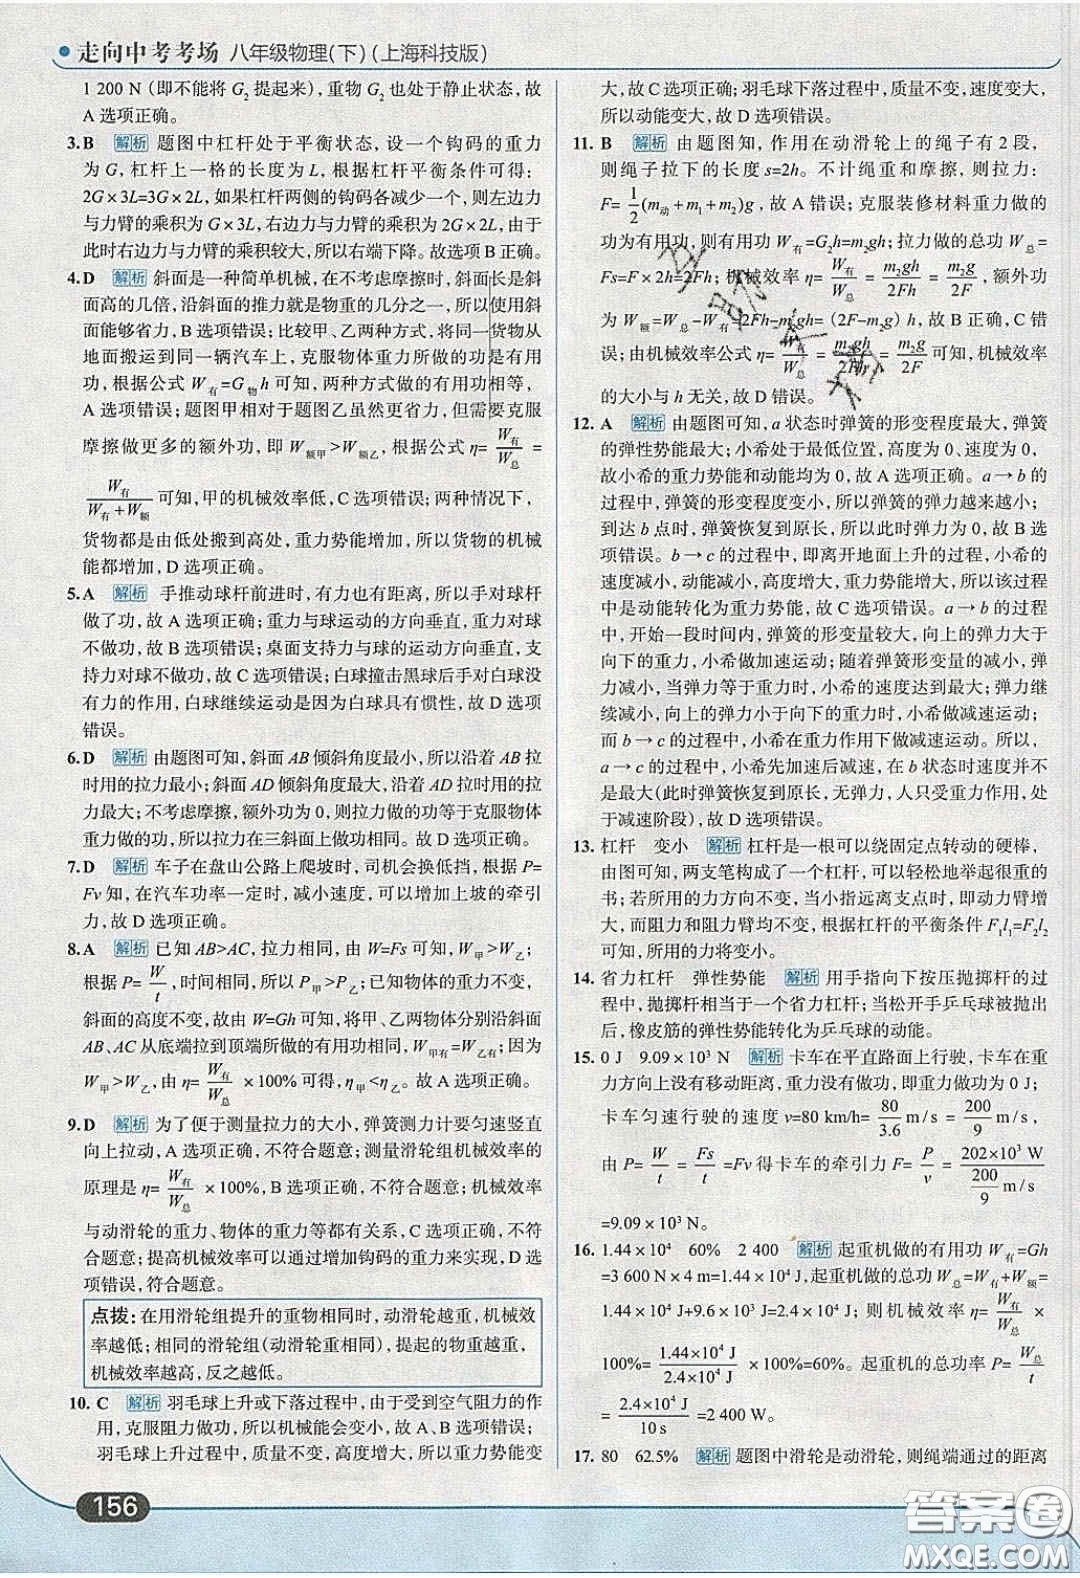 走向中考考场 八年级物理(下)(上海科技版)
1 200 N(即不能将 G2 提起来),重物 G2 也处于静止状态,故
A 选项正确。
3. B 解析 题图中杠杆处于平衡状态,设一个钩码的重力
为 G,杠杆上一格的长度为 L,根据杠杆平衡条件可得:
2G×3L=3G×2L,如果杠杆两侧的钩码各减少一个,则左边力
与力臂的乘积为 G×3L,右边力与力臂的乘积为 2G×2L,由于
此时右边力与力臂的乘积较大,所以右端下降。故选项 B 正确。
4. D 解析 斜面是一种简单机械,在不考虑摩擦时,斜面长是斜
面高的几倍,沿斜面的推力就是物重的几分之一,所以使用斜
面能够省力,B 选项错误;比较甲、乙两种方式,将同一货物从
地面搬运到同一辆汽车上,克服物体重力所做的功是有用
功,根据公式 W有=G物h 可知,两种方式做的有用功相等,
A 选项错误;题图甲相对于题图乙虽然更省力,但需要克服
摩擦做更多的额外功,即 W额甲>W额乙,根据公式 η=W有/W总=
W有/(W有+W额) 可知,甲的机械效率低,C 选项错误;两种情况下,
货物都是由低处搬到高处,重力势能增加,所以货物的机械
能都增加,D 选项正确。
5. A 解析 手推动球杆前进时,有力也有距离,所以手对球杆
做了功,故 A 选项正确;重力与球运动的方向垂直,重力对球
不做功,故 B 选项错误;桌面支持力与球的运动方向垂直,支
持力对球不做功,故 C 选项错误;白球撞击黑球后手对白球没
有力的作用,白球继续运动是因为白球具有惯性,故 D 选项
错误。
6. D 解析 由题图可知,斜面 AB 倾斜角度最小,所以沿着 AB 拉
时用的拉力最小;斜面 AD 倾斜角度最大,沿着 AD 拉时用的拉
力最大;不考虑摩擦,额外功为 0,则拉力做的功等于克服物体
重力做的功,所以拉力在三斜面上做功相同。故 D 选项正确。
7. D 解析 车子在盘山公路上爬坡时,司机会换低挡,根据 P=
Fv 知,在汽车功率一定时,减小速度,可以增加上坡的牵引
力,故 D 选项正确。
8. A 解析 已知 AB>AC,拉力相同,由 W=Fs 可知,W甲>W乙;
根据 P=W/t,时间相同,所以 P甲>P乙;已知物体的重力不变,
斜面的高度不变,故由 W=Gh 可知,将甲、乙两物体分别沿斜面
AB、AC 从底端拉到顶端所做的有用功相同,W甲有=W乙有;因为
W甲>W乙,由 η=W有/W总×100%可得,η甲<η乙。故 A 选项正确。
9. D 解析 为了便于测量拉力的大小,弹簧测力计要匀速竖直
向上拉动,A 选项正确,不符合题意;测量滑轮组机械效率的
原理是 η=W有/W总×100%,B 选项正确,不符合题意;机械效率
与动滑轮的重力、物体的重力等都有关系,C 选项正确,不符
合题意;提高机械效率可以通过增加钩码的重力来实现,D 选
项错误,符合题意。
点拨:在用滑轮组提升的重物相同时,动滑轮越重,机械效
率越低;相同的滑轮组(动滑轮重相同),提起的物重越重,
机械效率越高,反之越低。
10. C 解析 羽毛球上升或下落过程中,由于受到空气阻力的作
用,克服阻力做功,所以机械能会变小,故 A、B 选项错误;
羽毛球上升过程中,质量不变,高度增大,所以重力势能变
大,故 C 选项正确;羽毛球下落过程中,质量不变,速度变大,
所以动能变大,故 D 选项错误。
11. B 解析 由题图知,作用在动滑轮上的绳子有 2 段,
则绳子拉下的长度 s=2h。不计绳重和摩擦,则拉力:
F=1/2(m动+m1+m2)g,故 A 错误;克服装修材料重力做的
功为有用功,则有用功 W有=G2h=m2gh;拉力做的总功 W总=
Fs=F×2h=2Fh;机械效率 η=W有/W总=m2gh/2Fh=m2g/2F,额外功
为 W额=W总-W有=2Fh-m2gh=(2F-m2g)h,故 B 正确,C 错
误;由机械效率公式 η=W有/W总=m2gh/2Fh=m2g/2F 可知,机械效率
的大小与 h 无关,故 D 错误。
12. A 解析 由题图可知,a 状态时弹簧的形变程度最大,弹簧
的弹性势能最大;小希处于最低位置,高度为 0、速度为 0,
故小希的重力势能和动能均为 0,故 A 选项正确。a→b 的
过程中,弹簧的形变程度变小,所以弹簧的弹力越来越小;
到达 b 点时,弹簧恢复到原长,所以此时弹力为 0,故 B 选
项错误。b→c 的过程中,即离开地面上升的过程,小希的
速度减小,动能减小,高度增大,重力势能增大,所以该过程
中是动能转化为重力势能,故 C 选项错误。a→b 的过程
中,开始一段时间内,弹簧的形变量较大,向上的弹力大于
向下的重力,小希做加速运动;随着弹簧形变量的减小,弹
力减小,当弹力等于重力时,小希的速度达到最大;弹力继
续减小,向上的弹力小于向下的重力,小希做减速运动;
而 b→c 时,小希在重力作用下做减速运动。所以,
a→c 过程中,小希先加速后减速,在 b 状态时速度并不
是最大(此时弹簧恢复到原长,无弹力,人只受重力作用,处
于减速阶段),故 D 选项错误。
13. 杠杆 变小 解析 杠杆是一根可以绕固定点转动的硬棒,
由图可知,两支笔构成了一个杠杆,可以轻松地举起很重的
书;若所用的力方向不变,当小指远离支点时,即动力臂增
大,而阻力和阻力臂均不变,根据杠杆的平衡条件 F1l1=F2l2
可知,所用的力将变小。
14. 省力杠杆 弹性势能 解析 用手指向下按压抛掷杆的过
程中,抛掷杆相当于一个省力杠杆;当松开手乒乓球被抛出
后,橡皮筋的弹性势能转化为乒乓球的动能。
15. 0 J 9.09×10³ N 解析 卡车在平直路面上行驶,卡车在重
力方向上没有移动距离,重力没有做功,即重力做功为 0 J;
卡车匀速行驶的速度 v=80 km/h=80/3.6 m/s=200/9 m/s,
由 P=W/t=Fs/t=Fv 得卡车的牵引力 F=P/v=202×10³ W/(200/9 m/s)
=9.09×10³ N。
16. 1.44×10⁴ 60% 2 400 解析 起重机做的有用功 W有=Gh
=3 600 N×4 m=1.44×10⁴ J,起重机做的总功 W总=W有+W额=
1.44×10⁴ J+9.6×10³ J=2.4×10⁴ J;则机械效率 η=W有/W总×
100%=1.44×10⁴ J/2.4×10⁴ J×100%=60%。起重机的总功率 P=W总/t
=2.4×10⁴ J/10 s=2 400 W。
17. 80 62.5% 解析 题图中滑轮是动滑轮,则绳端通过的距离
156
答案圈
MXQE.COM